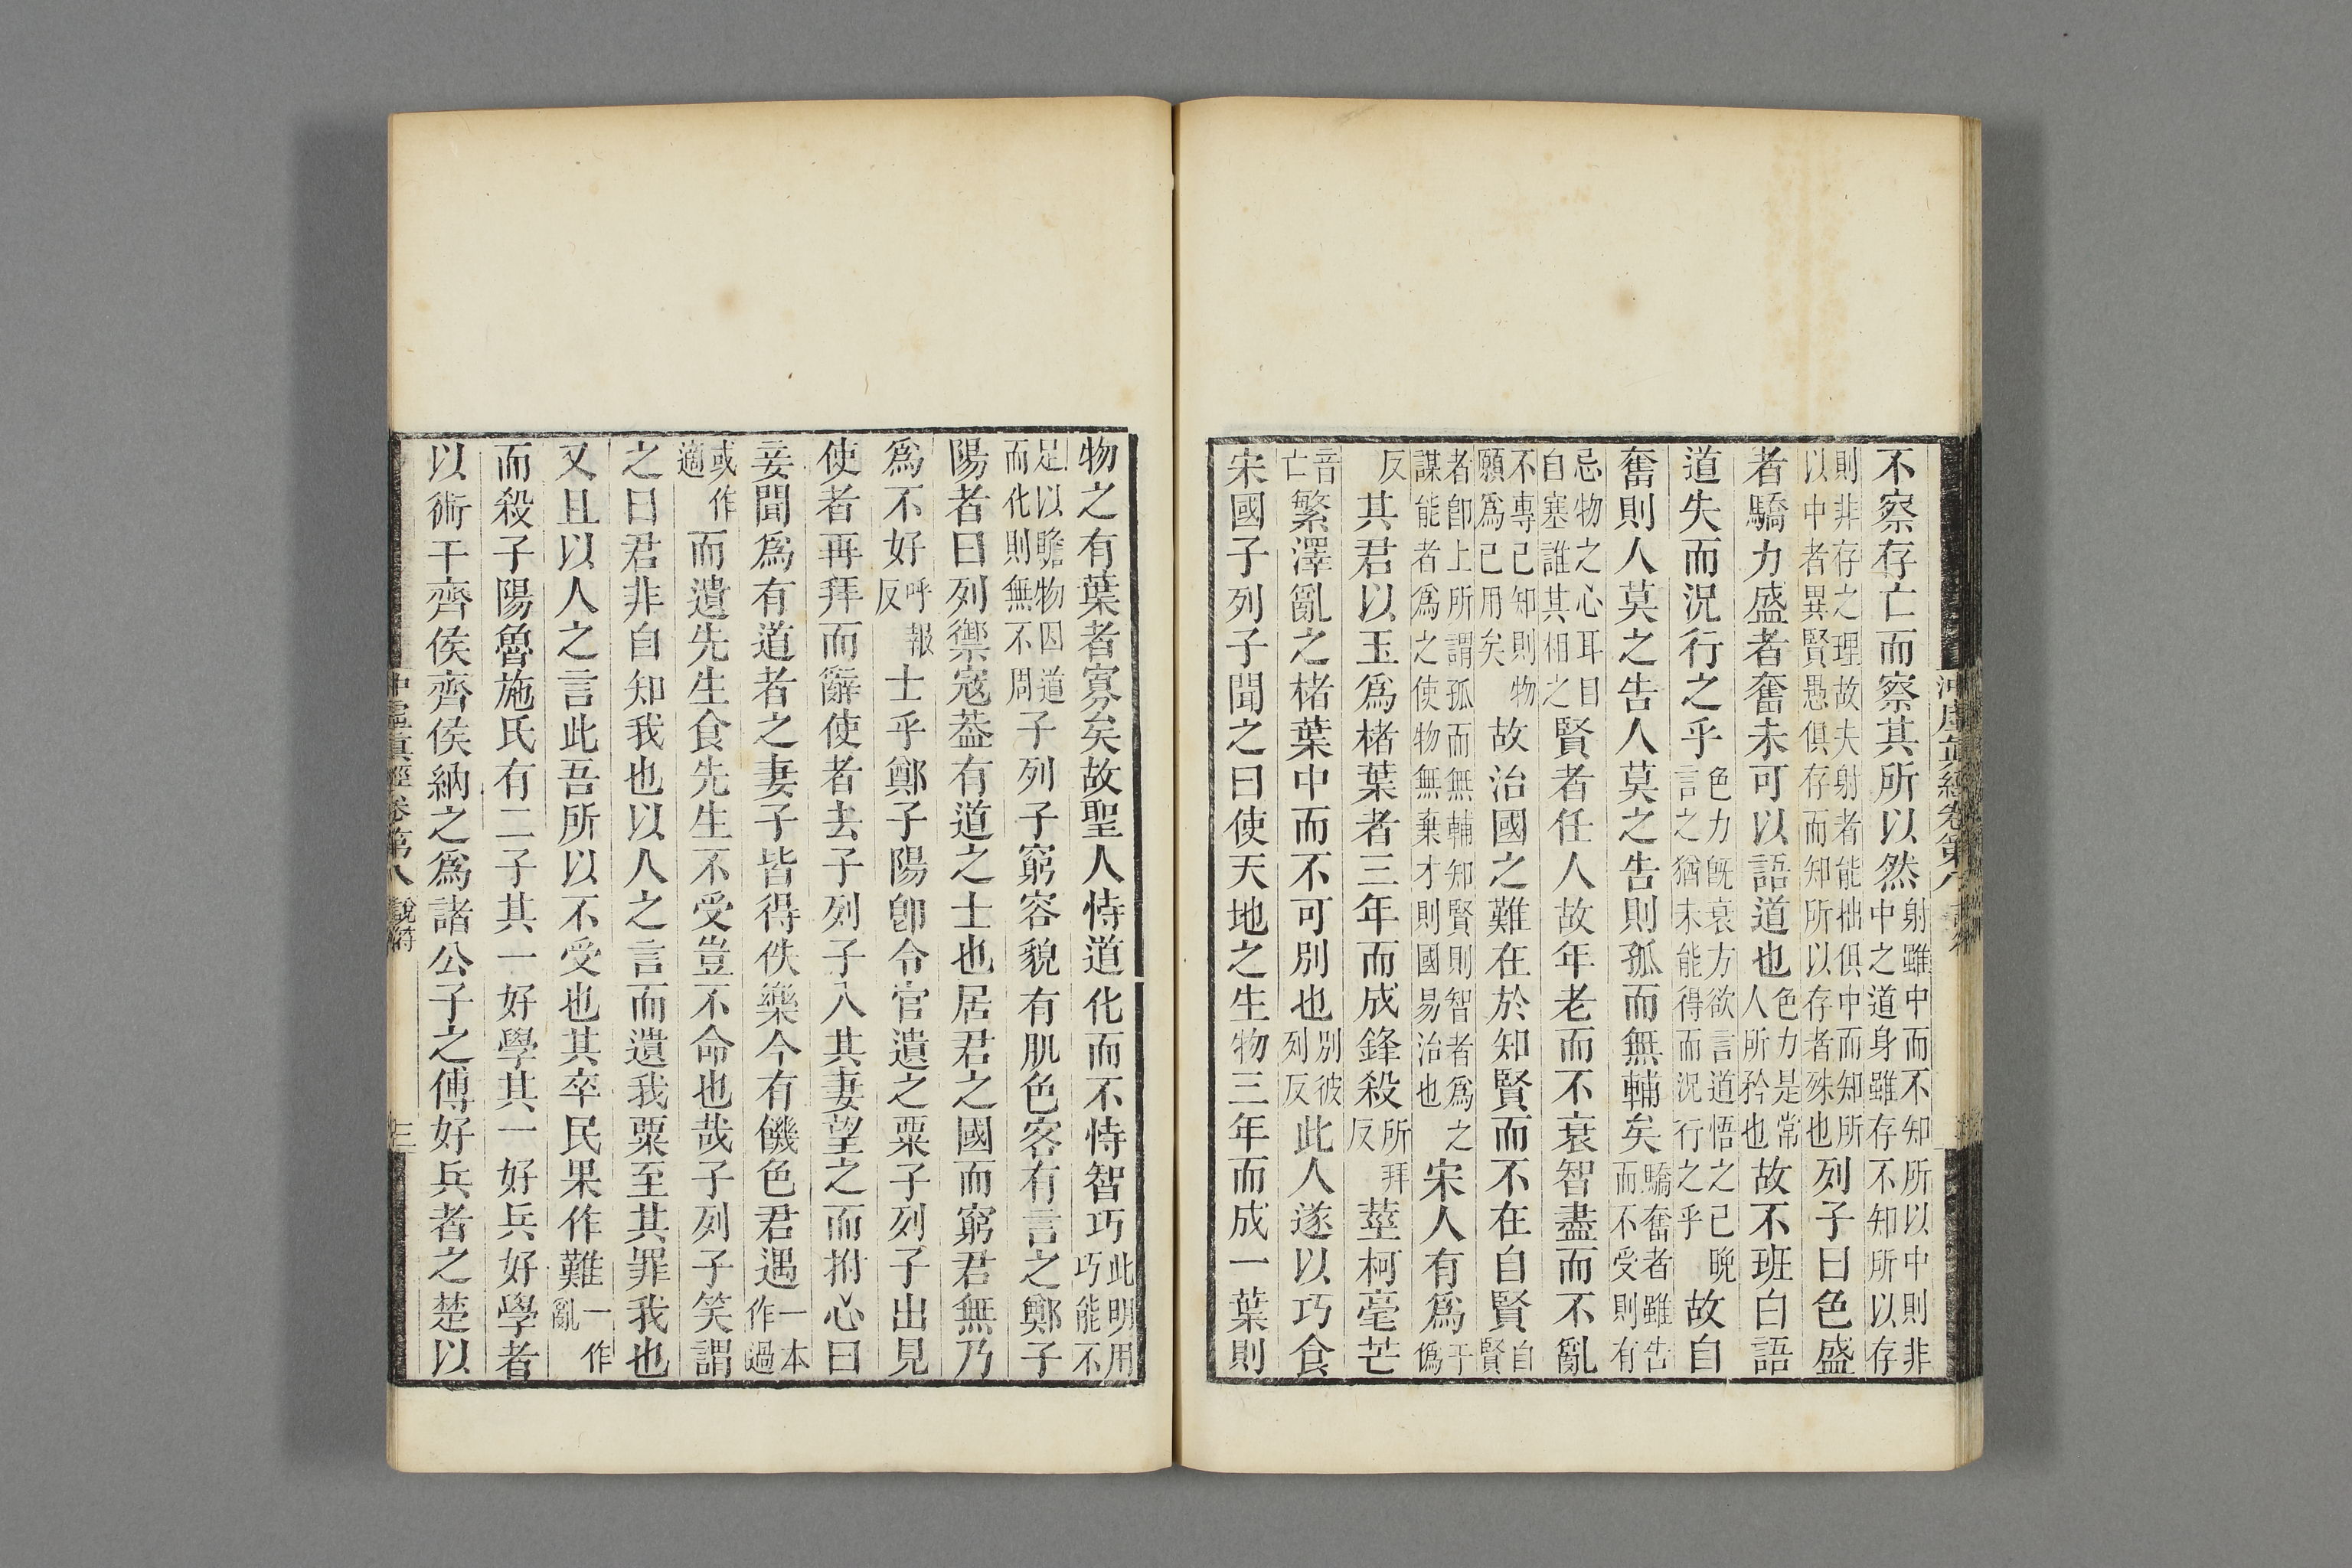 沖虛眞經卷第八 說符
不察存亡而察其所以然射雖中而不知所以中則非中之道身雖存不知所以存
則非存之理故夫射者能拙俱中而知所以中者異賢愚俱存而知所以存者殊也列子曰色盛
者驕力盛者奮未可以語道也色力是常人所矜也故不班白語
道失而況行之乎色力旣衰方欲言道悟之已晚言之猶未能得而況行之乎故自
奮則人莫之告人莫之告則孤而無輔矣驕奮者雖告而不受則有
忌物之心耳目自塞誰其相之賢者任人故年老而不衰智盡而不亂
不專己知則物願爲己用矣故治國之難在於知賢而不在自賢自賢
者卽上所謂孤而無輔知賢則智者爲之謀能者爲之使物無棄才則國易治也宋人有爲于僞
反其君以玉爲楮葉者三年而成鋒殺所拜反莖柯毫芒
音亡繁澤亂之楮葉中而不可別也別彼列反此人遂以巧食
宋國子列子聞之曰使天地之生物三年而成一葉則
物之有葉者寡矣故聖人恃道化而不恃智巧此明用巧能不
足以贍物因道而化則無不周子列子窮容貌有肌色客有言之鄭子
陽者曰列禦寇葢有道之士也居君之國而窮君無乃
爲不好呼報反士乎鄭子陽卽令官遺之粟子列子出見
使者再拜而辭使者去子列子入其妻望之而拊心曰
妾聞爲有道者之妻子皆得佚樂今有饑色君遇一本作過
或作適而遺先生食先生不受豈不命也哉子列子笑謂
之曰君非自知我也以人之言而遺我粟至其罪我也
又且以人之言此吾所以不受也其卒民果作難一作亂
而殺子陽魯施氏有二子其一好學其一好兵好學者
以術干齊侯齊侯納之爲諸公子之傅好兵者之楚以
沖虛眞經卷第八 說符 三